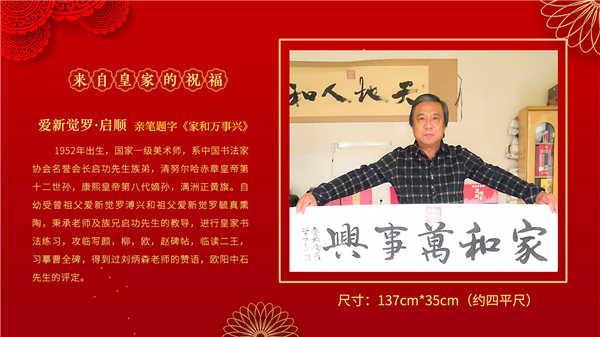 来自皇家的祝福
爱新觉罗·启顺 亲笔题字《家和万事兴》
1952年出生，国家一级美术师，系中国书法家
协会名誉会长启功先生族弟，清努尔哈赤章皇帝第
十二世孙，康熙皇帝第八代嫡孙，满洲正黄旗。自
幼受曾祖父爱新觉罗溥兴和祖父爱新觉罗毓真熏
陶，秉承老师及族兄启功先生的教导，进行皇家书
法练习，攻临写颜，柳，欧，赵碑帖，临读二王，
习摹曹全碑，得到过刘炳森老师的赞语，欧阳中石
先生的评定。
天地人和
家和萬事興
尺寸：137cm*35cm（约四平尺）